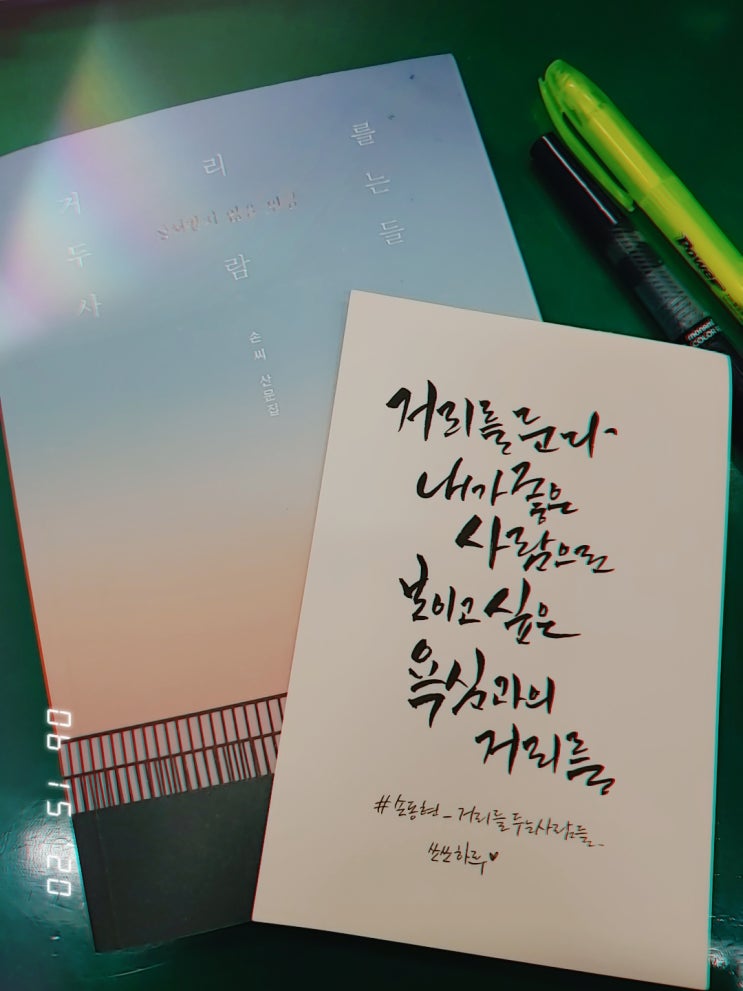 거리를
두는
사람들
손씨 산문집
거리를 둔다
내가 좋은
사람으로
보이고 싶은
욕심과의
거리를
#손동현_거리를 두는 사람들
쓰쓰하루♥
Power
monami
COLOR
06 15 '20